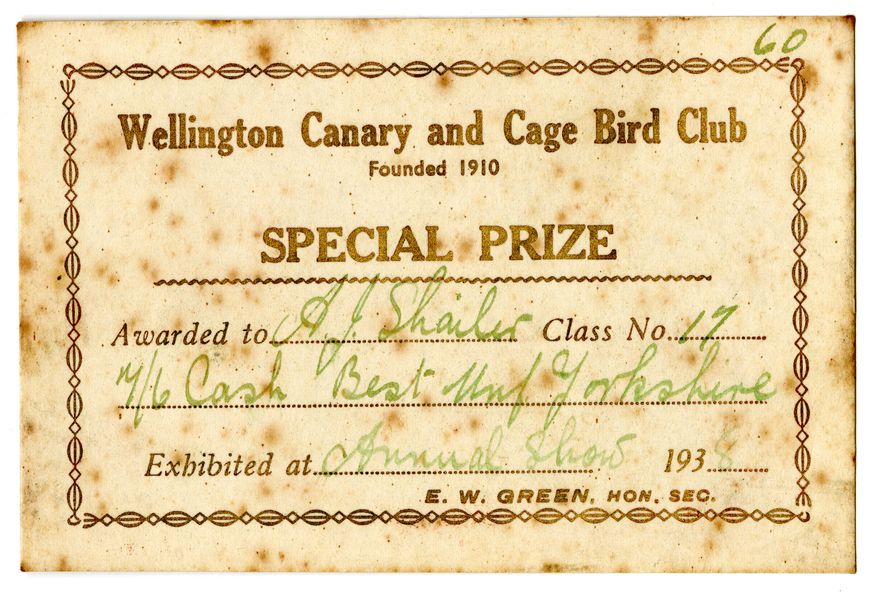 60
Wellington Canary and Cage Bird Club
Founded 1910
SPECIAL PRIZE
Awarded to A J. Shailer Class No. 17
7/6 Cash Best Unf Yorkshire
Exhibited at Annual Show 1938
E. W. GREEN, HON. SEC.